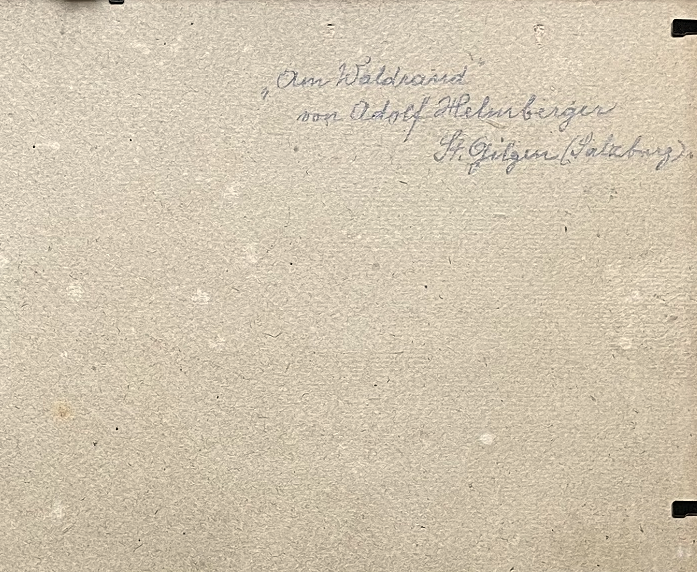 „Am Waldrand"
von Adolf Helmberger
St. Gilgen (Salzburg).